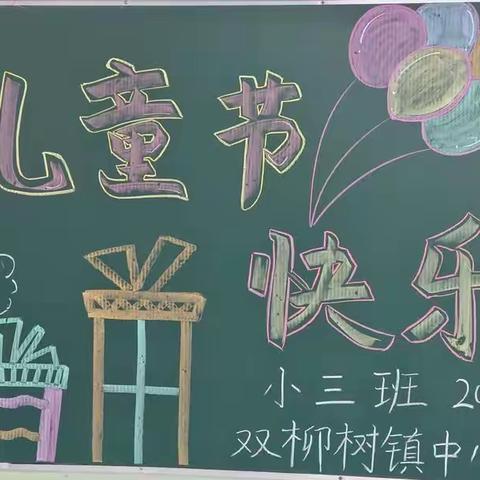 儿童节
快乐
小三班 20
双柳树镇中小